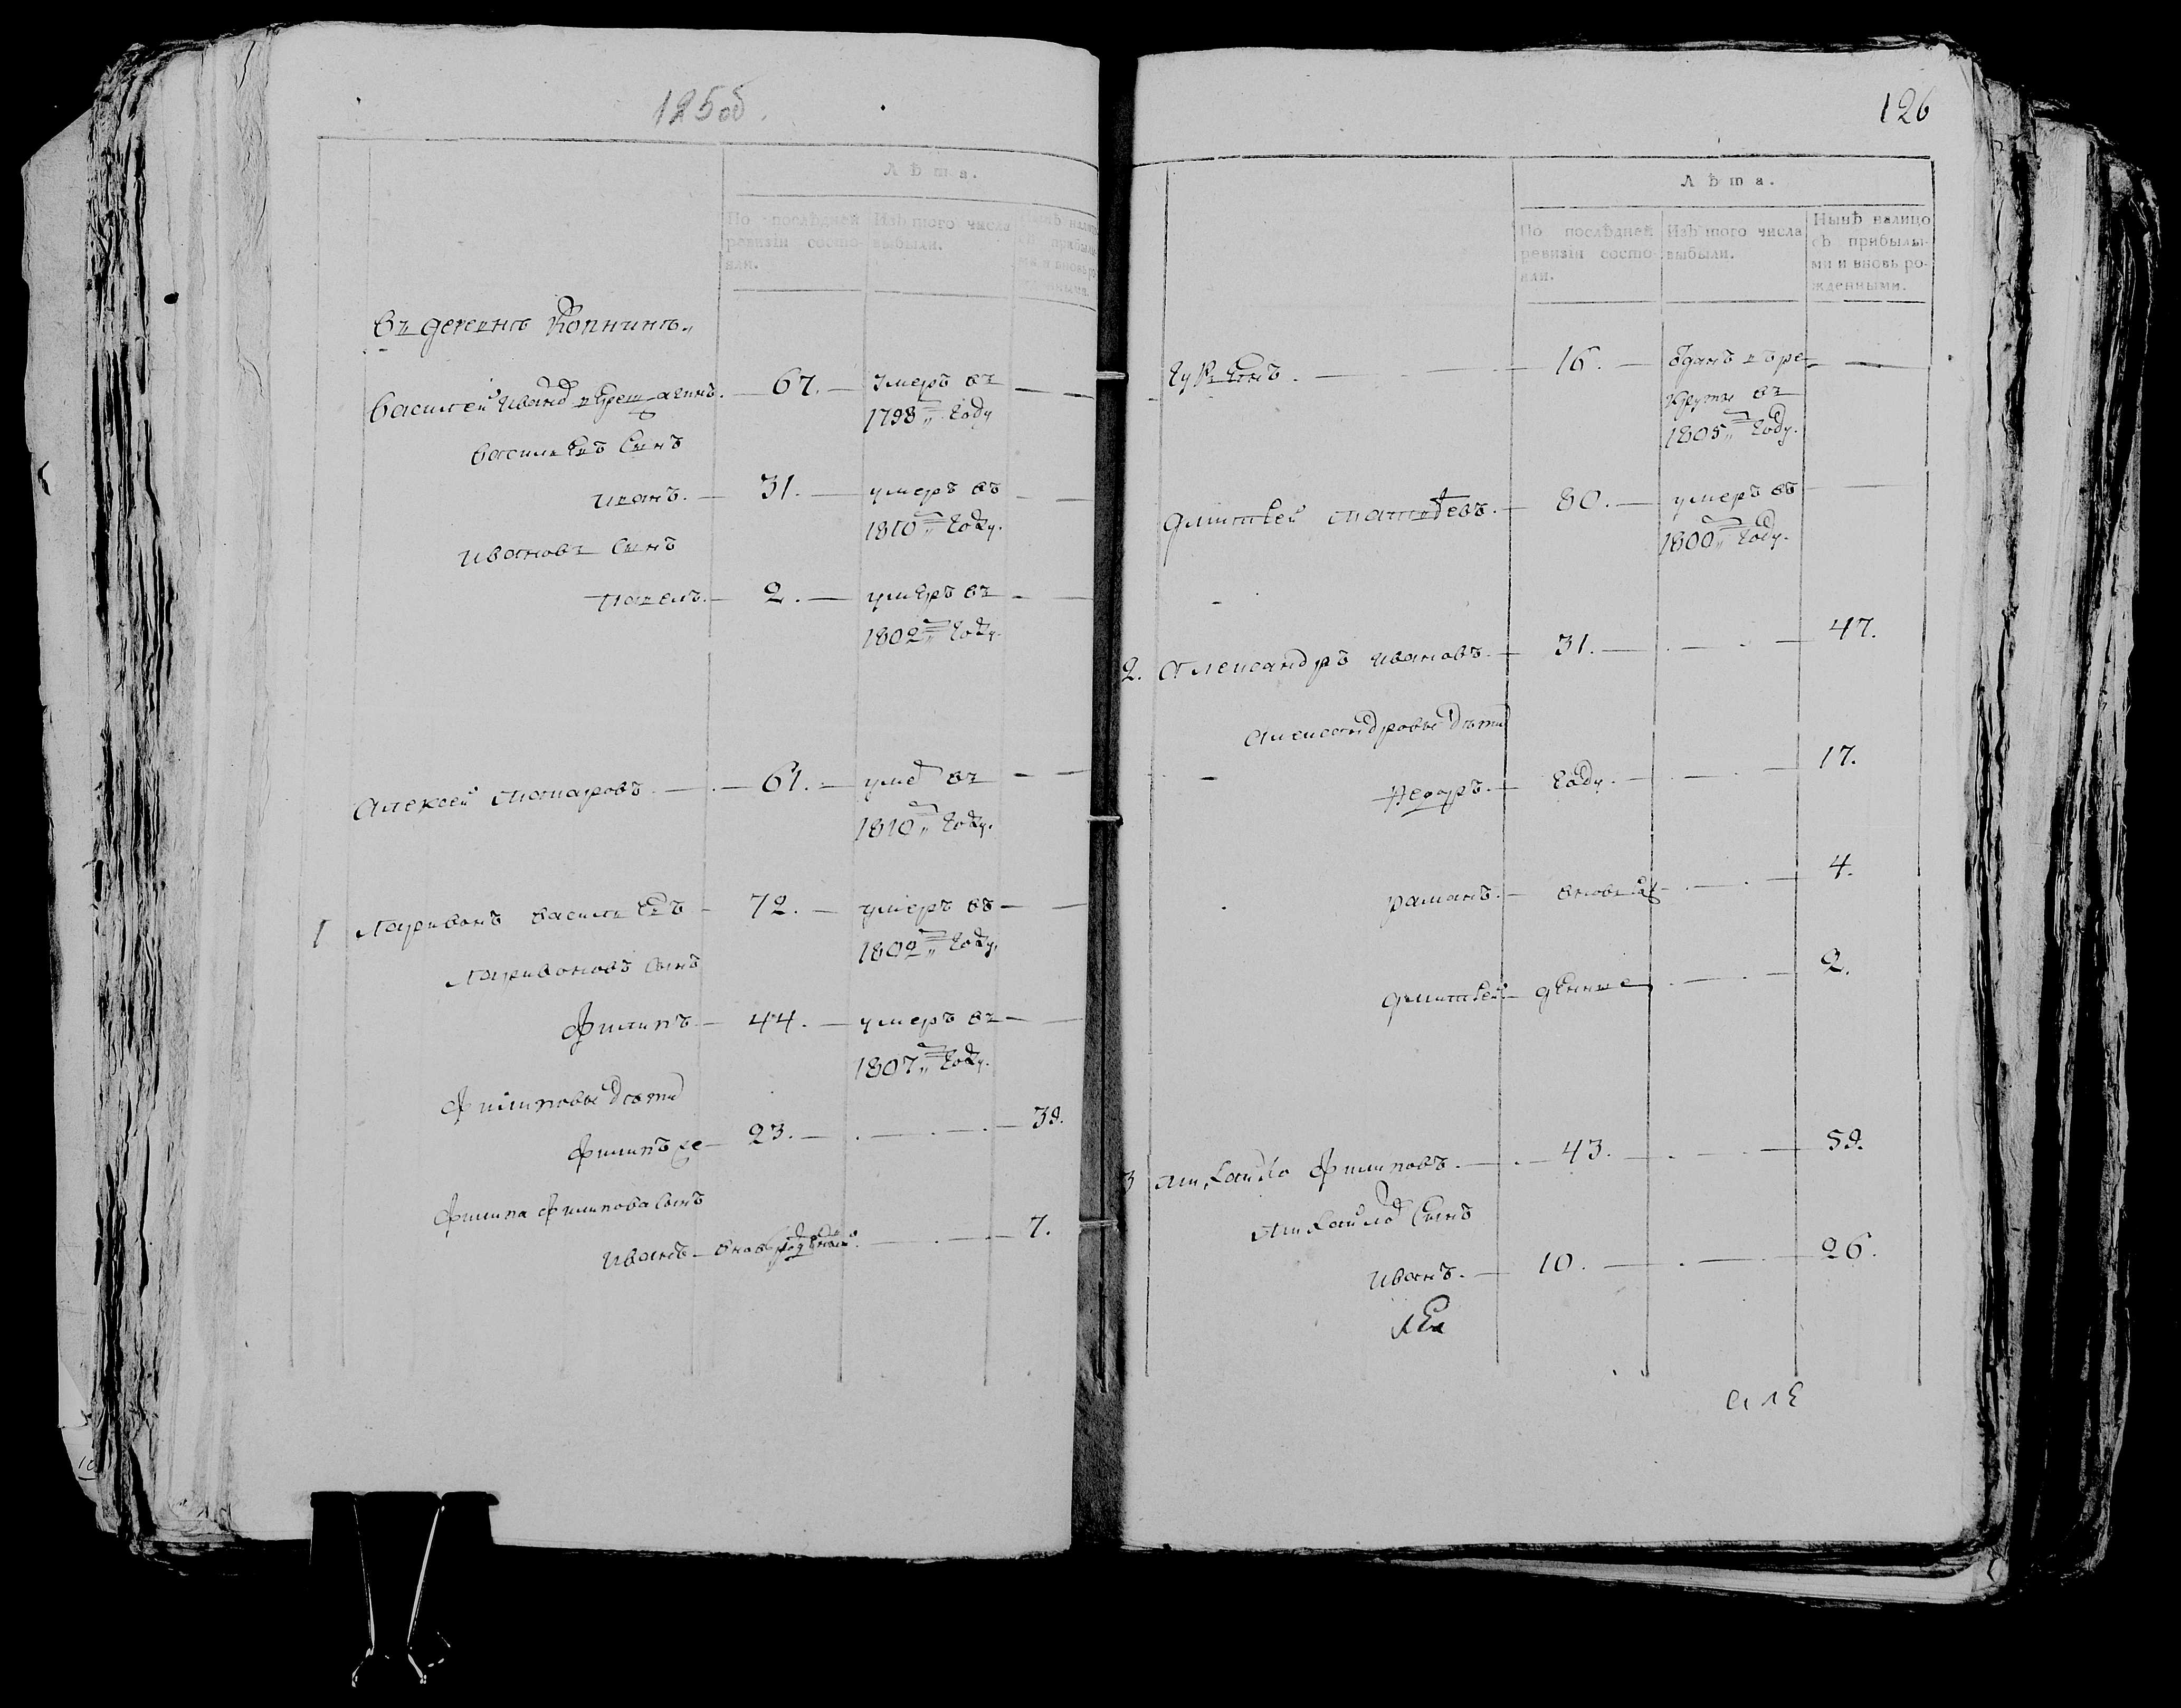 125об.
Лѣта.
По послѣдней ревизіи состояли.
Изъ того числа выбыли.
Въ деревнѣ Копнинѣ
Василей Ивановъ 67. умеръ въ
1798 году
Васильевъ сынъ
Иванъ. 31. умеръ въ
1810 году.
Ивановъ сынъ
Павелъ. 2. умеръ въ
1802 году.
Алексей Макаровъ 61. умеръ въ
1810 году.
1 Ларивонъ Васильевъ 72. умеръ въ
1802 году.
Ларивоновъ сынъ
Филипъ 44. умеръ въ
1807 году.
Филиповы дѣти
Филипъ же 23. 39.
Филипа Филипова сынъ
Иванъ вновь рожденной. 7.
126
Лѣта.
По послѣдней ревизіи состояли.
Изъ того числа выбыли.
Нынѣ налицо съ прибылыми и вновь рожденными.
16. отданъ в ре-
круты въ
1805 году.
Дмитрей Матвѣевъ. 80. умеръ въ
1800 году.
2. Александръ Ивановъ 31. 47.
Александровы дѣти
Федоръ. году. 17.
Раманъ. вновь рож- 4.
Дмитрей денные 2.
3 Михайло Филиповъ. 43. 59.
Михайловъ сынъ
Иванъ. 10. 26.